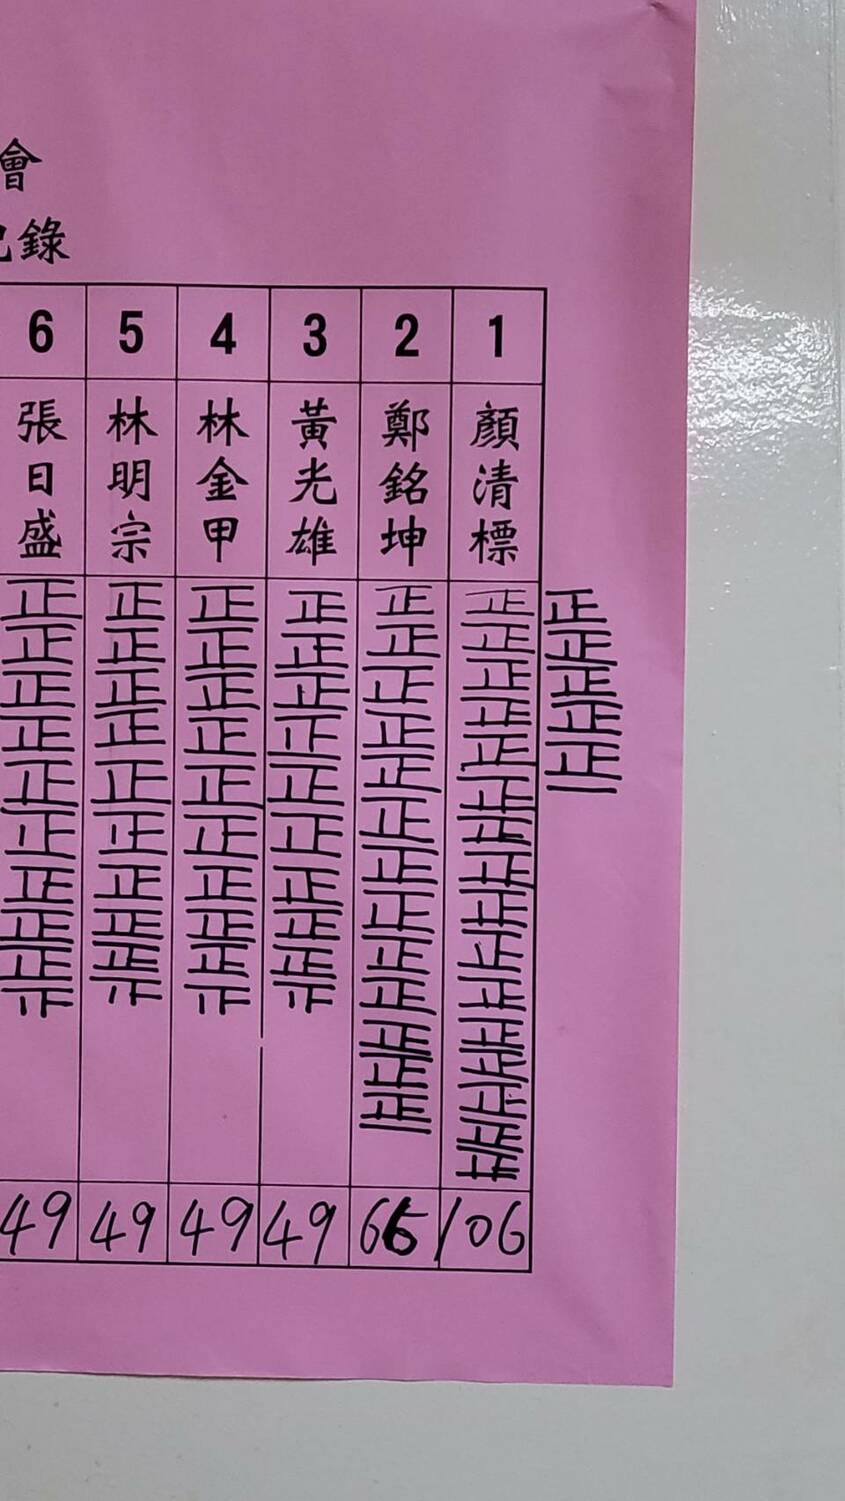 會
錄
1
顏清標
正正正正正正正正正正正正正正正正
正正正正正一
106
2
鄭銘坤
正正正正正正正正正正正正正一
66
3
黃光雄
正正正正正正正正正
49
4
林金甲
正正正正正正正正正
49
5
林明宗
正正正正正正正正正
49
6
張日盛
正正正正正正正正正
49